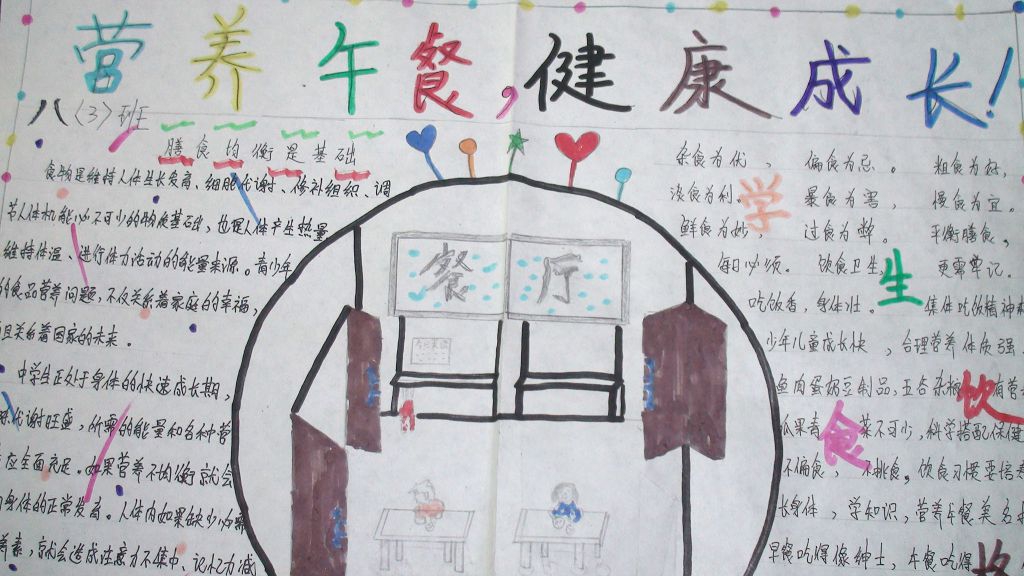 营养午餐,健康成长!
八〈3〉班
膳食均衡是基础
食物是维持人体生长发育、细胞代谢、修补组织、调
节人体机能必不可少的物质基础,也是人体产生热量
维持体温、进行体力活动的能量来源。青少年
的食品营养问题,不仅关系着家庭的幸福,
且关系着国家的未来。
中学生正处于身体的快速成长期,
代谢旺盛,所需的能量和各种营
应全面充足。如果营养不均衡就会
身体的正常发育。人体内如果缺少
养素,就会造成注意力不集中、记忆力减
餐厅
杂食为优, 偏食为忌。 粗食为好,
淡食为利。 暴食为害, 慢食为宜。
鲜食为妙, 过食为弊。 平衡膳食,
每日必须。 饮食卫生, 更需牢记。
吃饭香,身体壮。 集体吃饭精神
少年儿童成长快,合理营养体质强
鱼肉蛋奶豆制品,五谷杂粮 有营
瓜果青菜不可少,科学搭配保健
不偏食, 不挑食。饮食习惯要培养
长身体,学知识,营养午餐美名
早餐吃得像绅士,午餐吃得
学
生
饮
食
格